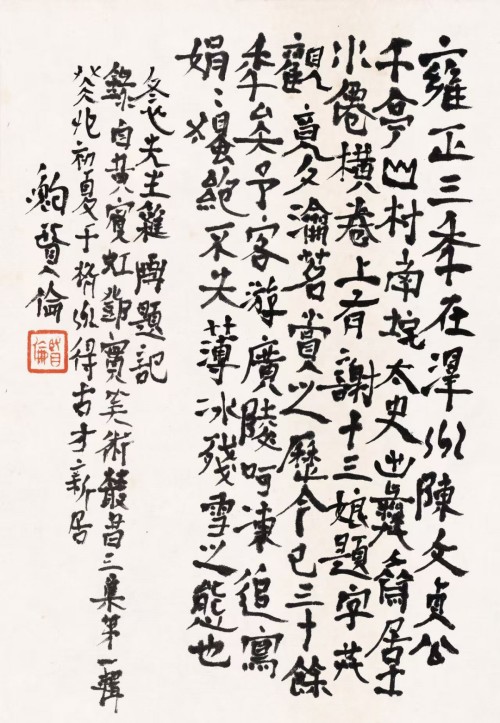 雍正三年在澤州陳文貞公
午亭山村南垞太史出彝齋居士
水僊橫卷上有謝十三娘題字共
觀竟夕瀹茗賞之歷今已三十餘
年矣予客游廣陵呵凍追寫
娟絕不失薄冰殘雪之態也
冬心先生雜畫題記
錄自黃賓虹鄧實美術叢書三集第一輯
癸卯初夏于杭州得古才新居
鮑賢倫
賢倫